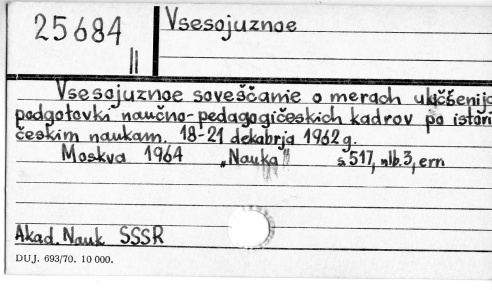 25684
II
Vsesojuznoe
Vsesojuznoe soveščanie o merach ulučšenija
podgotovki naučno-pedagogičeskich kadrov po istori
českim naukam. 18-21 dekabrja 1962 g.
Moskva 1964 „Nauka" s 517, nlb. 3, ern
Akad. Nauk SSSR
DUJ. 693/70. 10 000.